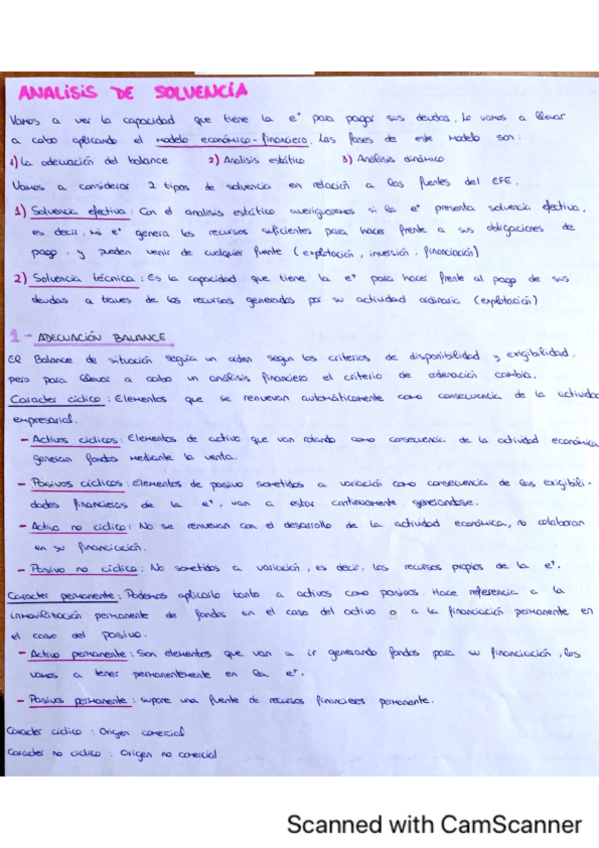 ANALISIS DE SOLVENCIA
Vamos a ver la capacidad que tiene la eª para pagar sus deudas. Lo vamos a llevar
a cabo aplicando el modelo económico-financiero. Las fases de este modelo son:
1) La adecuación del balance 2) Analisis estático 3) Análisis dinámico
Vamos a considerar 2 tipos de solvencia en relación a las fuentes del EFE.
1) Solvencia efectiva: Con el analisis estático averiguaremos si la eª presenta solvencia efectiva,
es decir, si eª genera los recursos suficientes para hacer frente a sus obligaciones de
pago, y pueden venir de cualquier fuente (explotación, inversión, financiación)
2) Solvencia técnica: Es la capacidad que tiene la eª para hacer frente al pago de sus
deudas a traves de los recursos generados por su actividad ordinaria (explotación)
1 - ADECUACIÓN BALANCE
El Balance de situación seguía un orden segun los criterios de disponibilidad y exigibilidad,
pero para llevar a cabo un análisis financiero el criterio de ordenación cambia.
Caracter cíclico: Elementos que se renuevan automáticamente como consecuencia de la actividad
empresarial.
- Activos cíclicos: Elementos de activo que van rotando como consecuencia de la actividad económica,
generan fondos mediante la venta.
- Pasivos cíclicos: Elementos de pasivo sometidos a variación como consecuencia de las exigibili-
dades financieras de la eª, van a estar continuamente generandose.
- Activo no cíclico: No se renuevan con el desarrollo de la actividad económica, no colaboran
en su financiación.
- Pasivo no cíclico: No sometidos a variación, es decir, los recursos propios de la eª.
Caracter permanente: Podemos aplicarlo tanto a activos como pasivos. Hace referencia a la
inmovilización permanente de fondos en el caso del activo o a la financiación permanente en
el caso del pasivo.
- Activo permanente: Son elementos que van a ir generando fondos para su financiación, los
vamos a tener permanentemente en la eª.
- Pasivos permanente: supone una fuente de recursos financieros permanente.
Caracter cíclico: Origen comercial
Caracter no cíclico: Origen no comercial
Scanned with CamScanner